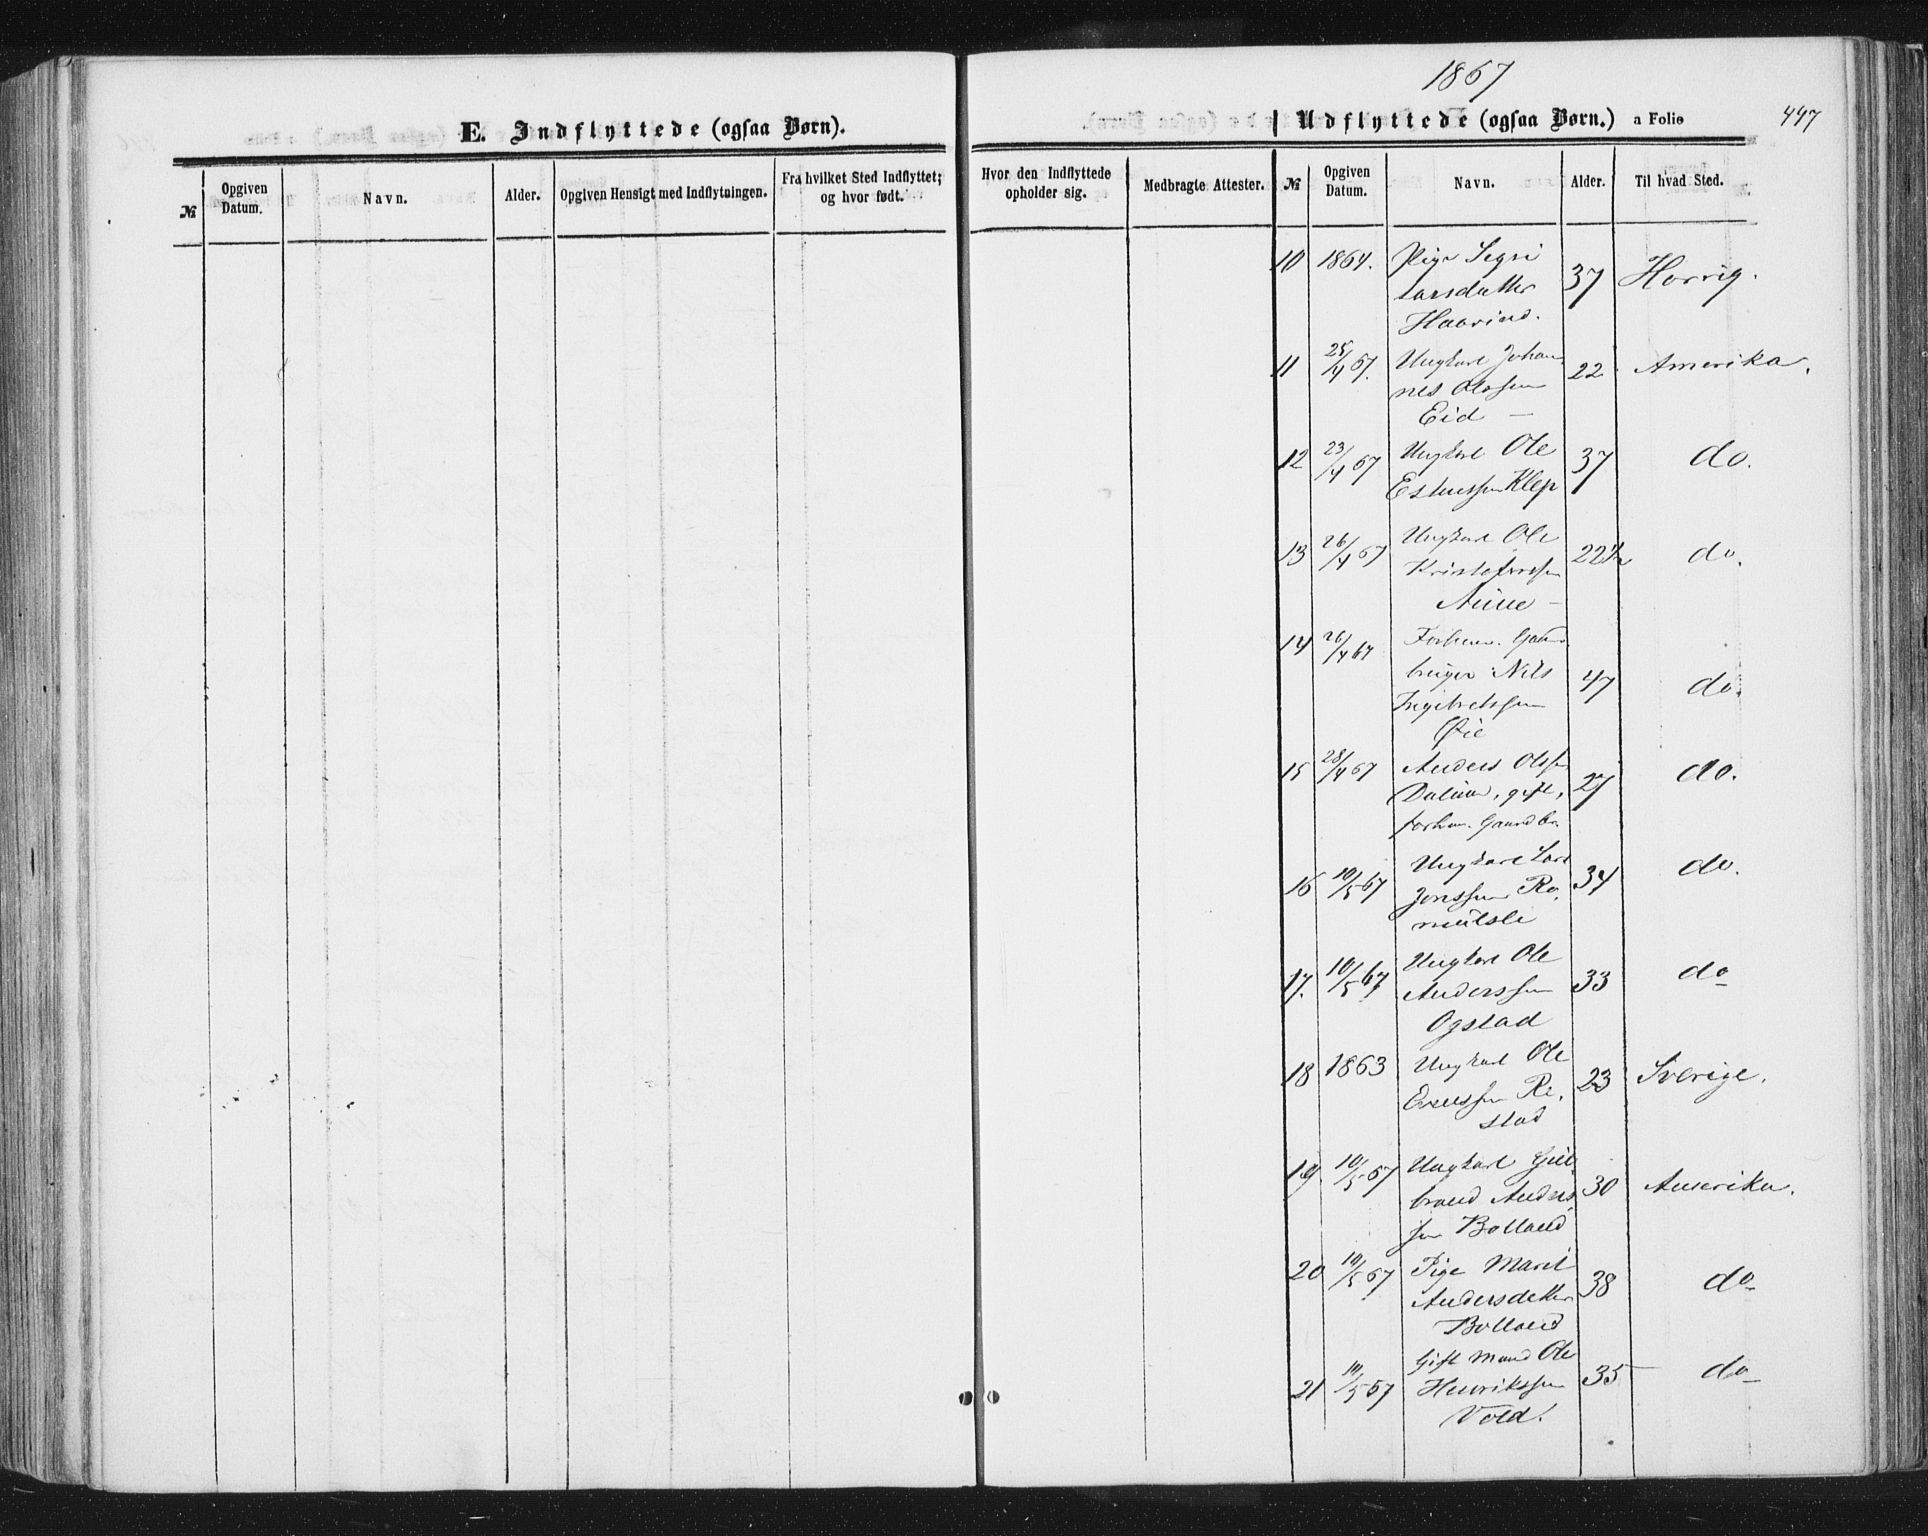 1867
E. Indflyttede (ogsaa Børn).
Udflyttede (ogsaa Børn.) a Folio 447
№ Opgiven Datum. Navn. Alder. Opgiven Hensigt med Indflytningen. Fra hvilket Sted Indflyttet; og hvor født.
Hvor den Indflyttede opholder sig. Medbragte Attester. № Opgiven Datum. Navn. Alder. Til hvad Sted.
10 1864. Pige Sigri 37 Horrig.
Larsdatter
11 25/4 67. Ungkarl Johan 22 Amerika.
nes Olsen
Eid —
12 23/4 67 Ungkarl Ole 37 do.
Estensen Klep
13 26/4 67 Ungkarl Ole 22 1/2 do.
Kristofersen
Aune —
14 26/4 67 Forhen. Gaard
bruger Nils 47 do.
Ingebretssen
Øie
15 28/4 67 Anders Olsen 27 do.
gift,
forhen. Gaardbr.
16 10/5 67 Ungkarl Lars 34 do.
Jonssen Ro
mulsli
17. 10/5 67 Ungkarl Ole 33 do
Anderssen
Ogstad
18 1863 Ungkarl Ole 23 Sverige.
Re
stad
19. 10/5 67 Ungkarl Gul
brand Anders 30 Amerika.
sen Bolland
20 10/5 67 Pige Marit 38 do
Andersdatter
Bolland
21 10/5 67 Gift Mand Ole 35 do
Henrikssen
Vold.